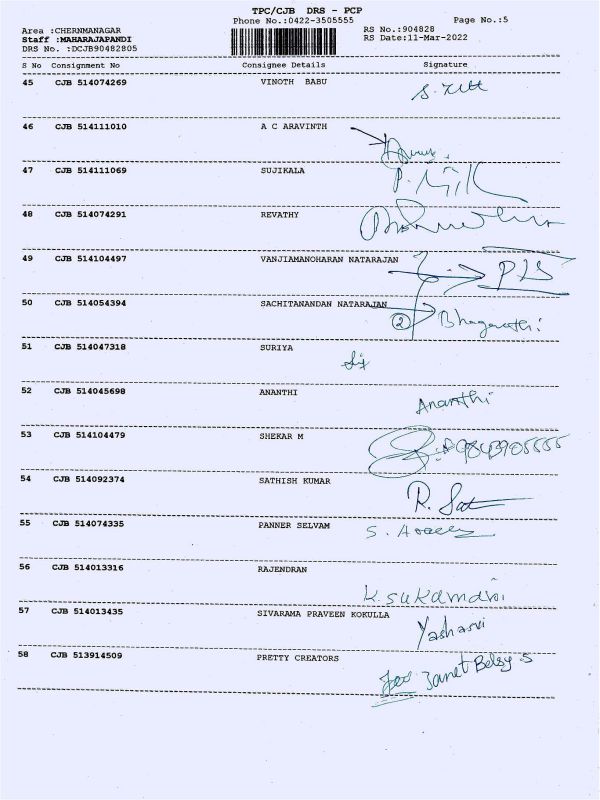 TPC/CJB DRS - PCP
Phone No.:0422-3505555 Page No.:5
Area :CHERNMANAGAR RS No.:904828
Staff :MAHARAJAPANDI RS Date:11-Mar-2022
DRS No. :DCJB90482805
S No Consignment No Consignee Details Signature
45 CJB 514074269 VINOTH BABU
46 CJB 514111010 A C ARAVINTH
47 CJB 514111069 SUJIKALA
48 CJB 514074291 REVATHY
49 CJB 514104497 VANJIAMANOHARAN NATARAJAN
50 CJB 514054394 SACHITANANDAN NATARAJAN
2 Bhagavathi
51 CJB 514047318 SURIYA
52 CJB 514045698 ANANTHI
Ananthi
53 CJB 514104479 SHEKAR M
54 CJB 514092374 SATHISH KUMAR
55 CJB 514074335 PANNER SELVAM
56 CJB 514013316 RAJENDRAN
K. sukamani
57 CJB 514013435 SIVARAMA PRAVEEN KOKULLA
Yashasvi
58 CJB 513914509 PRETTY CREATORS
Janet Belsy S